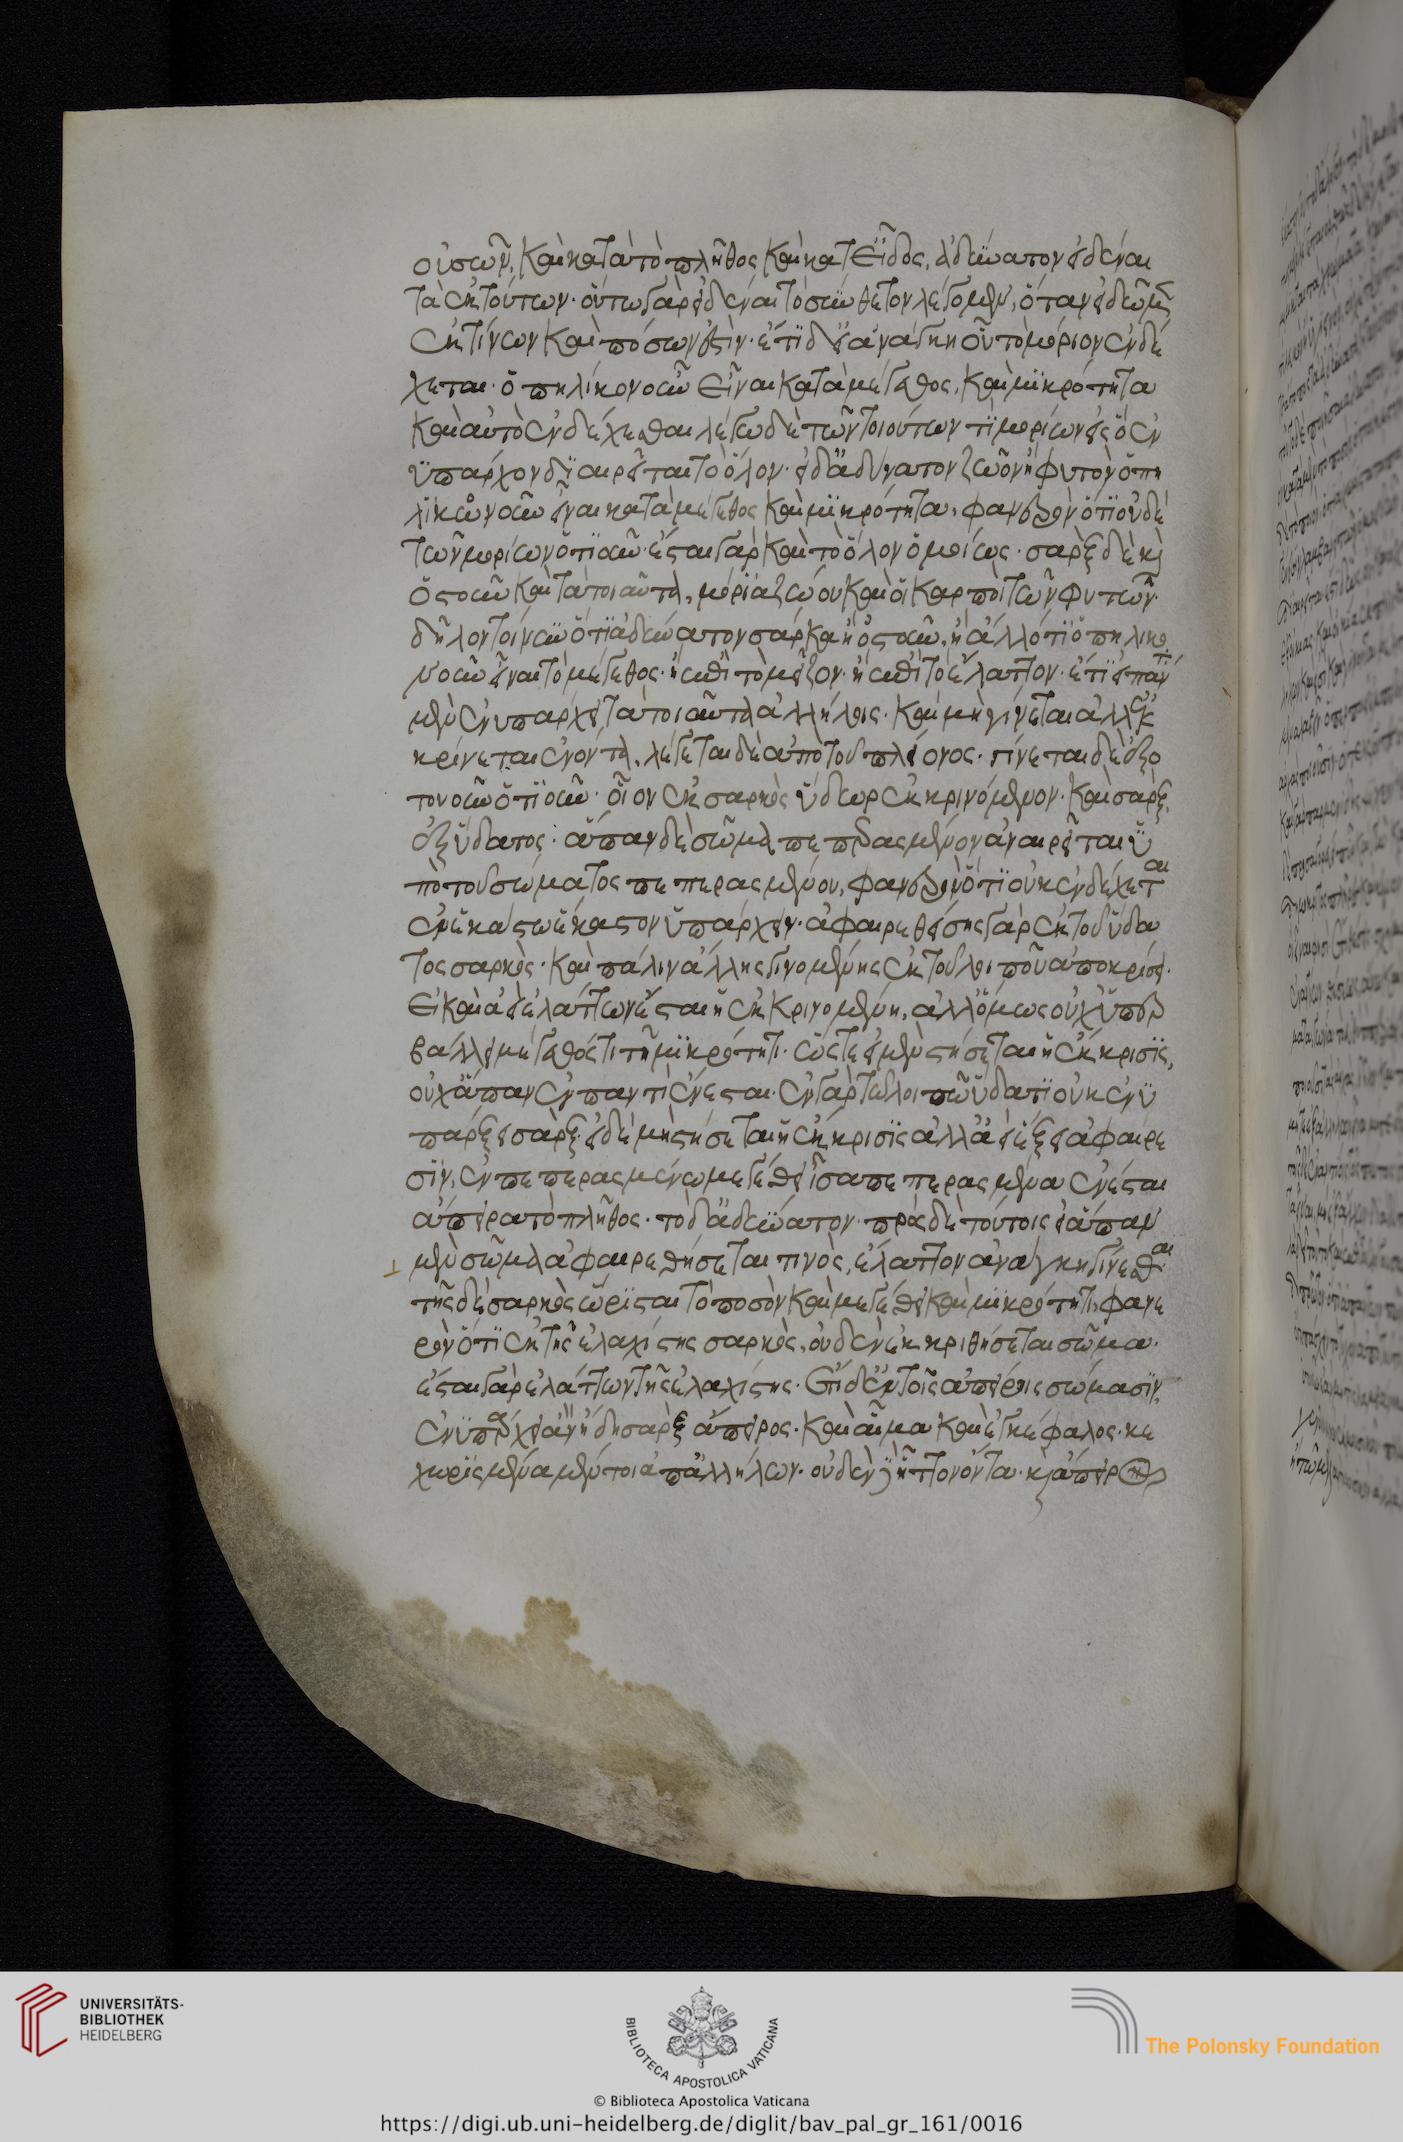 οὐσῶν, καὶ κατὰ τὸ πλῆθος καὶ κατ εἶδος, ἀδύνατον εἰδέναι
τὰ ἐκ τούτων· οὕτω γὰρ εἰδέναι τὸ σύνθετον λέγομεν, ὅταν εἰδῶμεν
ἐκ τίνων καὶ πόσων ἐστίν· ἔτι δ εἰ ἀνάγκη οὗ τὸ μόριον ἐνδέ
χεται· ὁπηλικονοῦν εἶναι κατὰ μέγαθος, καὶ μικρότητα
καὶ αὐτὸ ἐνδέχεσθαι λέγω δὲ τῶν τοιούτων τι μορίων εἰς ὃ ἐν
ϋπάρχον διαιρεῖται τὸ ὅλον· εἰ δ ἀδύνατον ζῶον ἢ φυτὸν ὁπη
λίκον οὖν εἶναι κατὰ μέγεθος καὶ μικρότητα, φανερὸν ὅτι οὐδὲ
τῶν μορίων ὁτιοῦν· ἔσται γὰρ καὶ τὸ ὅλον ὁμοίως· σὰρξ δὲ καὶ
ὀστοῦν καὶ τὰ τοιαῦτα, μόρια ζώου καὶ οἱ καρποὶ τῶν φυτῶν·
δῆλον τοίνυν ὅτι ἀδύνατον σάρκα ἢ ὀστοῦν, ἢ ἄλλό τι ὁπηλικο
νοῦν εἶναι τὸ μέγεθος· ἢ ἐπὶ τὸ μεῖζον· ἢ ἐπὶ τὸ ἔλαττον· ἔτι εἰ πάντα
μὲν ἐνυπάρχει τὰ τοιαῦτα ἀλλήλοις· καὶ μὴ γίνεται ἀλλ ἐκ
κρίνεται ἐνόντα, λέγεται δὲ ἀπὸ τοῦ πλείονος· γίνεται δὲ ἐξ ὁ
τουοῦν ὁτιοῦν· οἷον ἐκ σαρκὸς ὕδωρ ἐκκρινόμενον· καὶ σὰρξ
ἐξ ὕδατος· ἅπαν δὲ σῶμα πεπερασμένον ἀναιρεῖται ϋ
πὸ τοῦ σώματος πεπερασμένου, φανερὸν ὅτι οὐκ ἐνδέχεται
ἐν ἑκάστω ἕκαστον ὑπάρχειν· ἀφαιρεθείσης γὰρ ἐκ τοῦ ὕδα
τος σαρκὸς· καὶ πάλιν ἄλλης γινομένης ἐκ τοῦ λοιποῦ ἀποκρίσει·
εἰ καὶ ἀεὶ ἐλάττων ἔσται ἡ ἐκκρινομένη, ἀλλ ὅμως οὐχ ὑπερ
βάλλει μέγαθός τι τῆ μικρότητι· ὥστε εἰ μὲν στήσεται ἡ ἔκκρισις,
οὐχ ἅπαν ἐν παντὶ ἐνέσται· ἐν γὰρ τῶ λοιπῶ ὕδατι οὐκ ἐνϋ
πάρξει σὰρξ· εἰ δὲ μὴ στήσεται ἡ ἔκκρισις ἀλλ ἀεὶ ἕξει ἀφαίρε
σιν, ἐν πεπερασμένω μεγέθει ἴσα πεπερασμένα ἐνέσται
ἄπειρα τὸ πλῆθος· τὸ δ ἀδύνατον· πρὸς δὲ τούτοις εἰ ἅπαν
μὲν σῶμα ἀφαιρεθήσεται τινὸς, ἔλαττον ἀνάγκη γίνεσθαι·
τῆς δὲ σαρκὸς ὥρισται τὸ ποσὸν καὶ μεγέθει καὶ μικρότητι, φανε
ρὸν ὅτι ἐκ τῆς ἐλαχίστης σαρκὸς, οὐδὲν ἐκκριθήσεται σῶμα·
ἔσται γὰρ ἐλάττων τῆς ἐλαχίστης· ἔτι δ ἐν τοῖς ἀπείροις σώμασιν,
ἐνϋπάρχει ἂν ἤδη σὰρξ ἄπειρος· καὶ αἷμα καὶ ἐγκέφαλος· κε
χωρισμένα μέντοι ἀπ ἀλλήλων· οὐδὲν δ ἧττον ὄντα· καὶ ἄπειρον
UNIVERSITÄTS-
BIBLIOTHEK
HEIDELBERG
BIBLIOTECA APOSTOLICA VATICANA
The Polonsky Foundation
© Biblioteca Apostolica Vaticana
https://digi.ub.uni-heidelberg.de/diglit/bav_pal_gr_161/0016